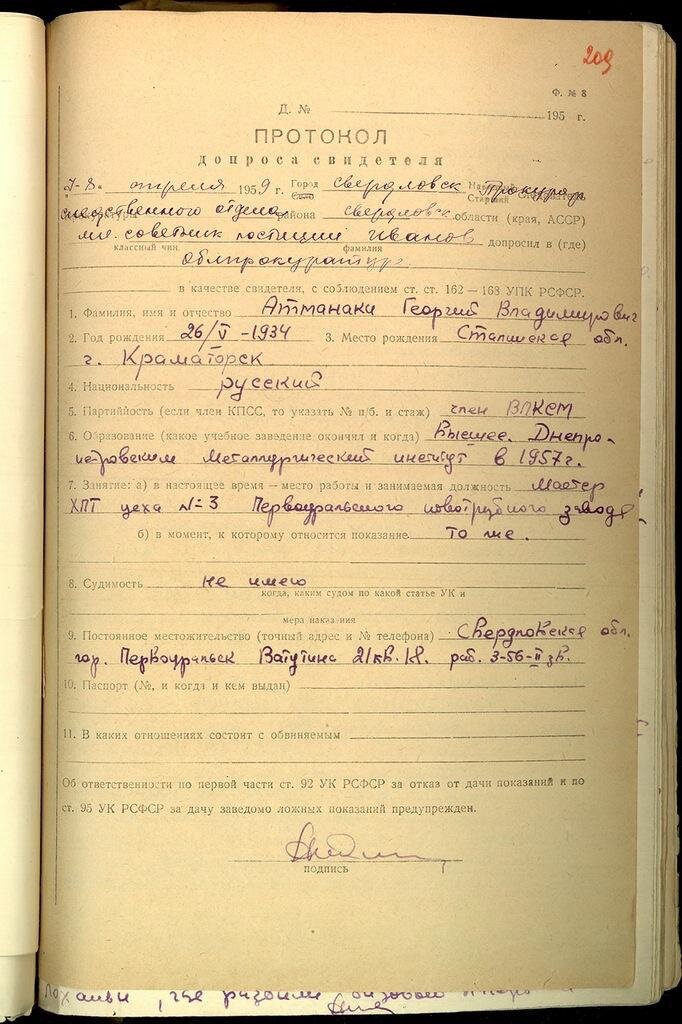 209
Ф. № 8
Д. № 195 г.
ПРОТОКОЛ
допроса свидетеля
7-8 апреля 1959 г. Город Село Свердловск Прокурор
следственного отдела района Свердловск. области (края, АССР)
мл. советник юстиции Иванов допросил в (где)
классный чин, фамилия
облпрокуратуре
в качестве свидетеля, с соблюдением ст. ст. 162 — 168 УПК РСФСР.
1. Фамилия, имя и отчество Атманаки Георгий Владимирович
2. Год рождения 26/V-1934 3. Место рождения Сталинская обл.
г. Краматорск
4. Национальность русский
5. Партийность (если член КПСС, то указать № п/б. и стаж) член ВЛКСМ
6. Образование (какое учебное заведение окончил и когда) Высшее. Днепро-
петровский Металлургический институт в 1957 г.
7. Занятие: а) в настоящее время — место работы и занимаемая должность Мастер
ХПТ цеха №3 Первоуральского новотрубного завода
б) в момент, к которому относится показание то же.
8. Судимость не имею
когда, каким судом по какой статье УК и
мера наказания
9. Постоянное местожительство (точный адрес и № телефона) Свердловская обл.
гор. Первоуральск Ватутина 21 кв. 18. раб. 3-56-II зв.
10. Паспорт (№, и когда и кем выдан)
11. В каких отношениях состоит с обвиняемым
Об ответственности по первой части ст. 92 УК РСФСР за отказ от дачи показаний и по
ст. 95 УК РСФСР за дачу заведомо ложных показаний предупрежден.
подпись
где разбили